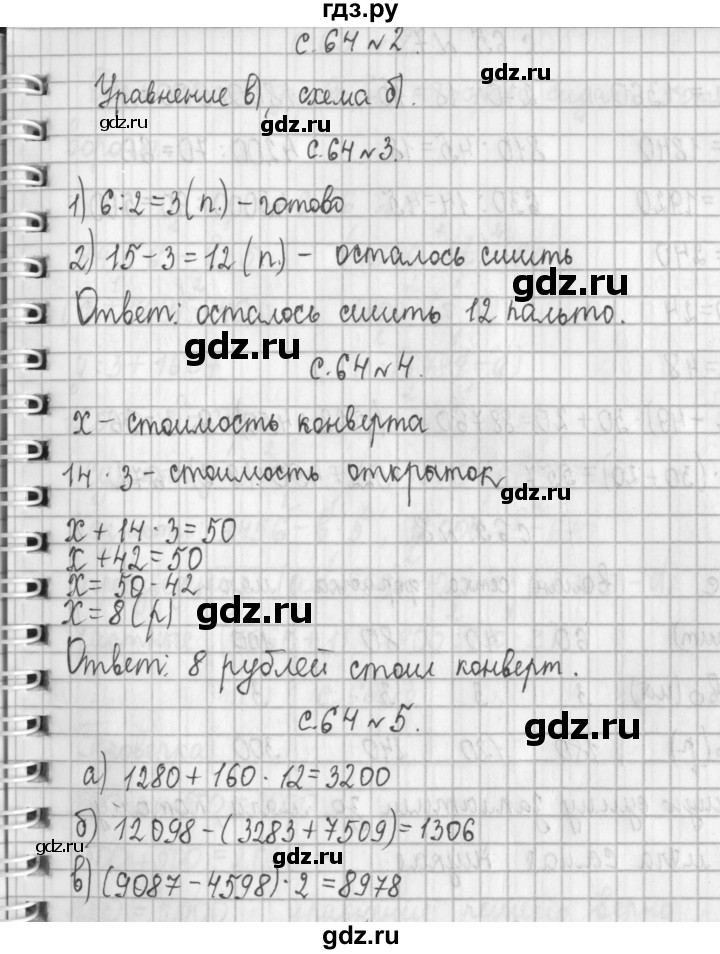 гдз.ру
с. 64 № 2.
Уравнение в), схема б).
gdz.ru
gdz.ru
с. 64 № 3.
1) 6 : 2 = 3 (п.) – готово
2) 15 – 3 = 12 (п.) – осталось сшить
gdz.ru
Ответ: осталось сшить 12 пальто.
gdz.ru
с. 64 № 4.
х – стоимость конверта
14 · 3 – стоимость открыток
gdz.ru
х + 14 · 3 = 50
х + 42 = 50
х = 50 - 42
х = 8 (р)
gdz.ru
Ответ: 8 рублей стоил конверт.
с. 64 № 5.
gdz.ru
а) 1280 + 160 · 12 = 3200
б) 12098 – (3283 + 7509) = 1306
gdz.ru
gdz.ru
в) (9087 – 4598) · 2 = 8978
gdz.ru
гдз.ру